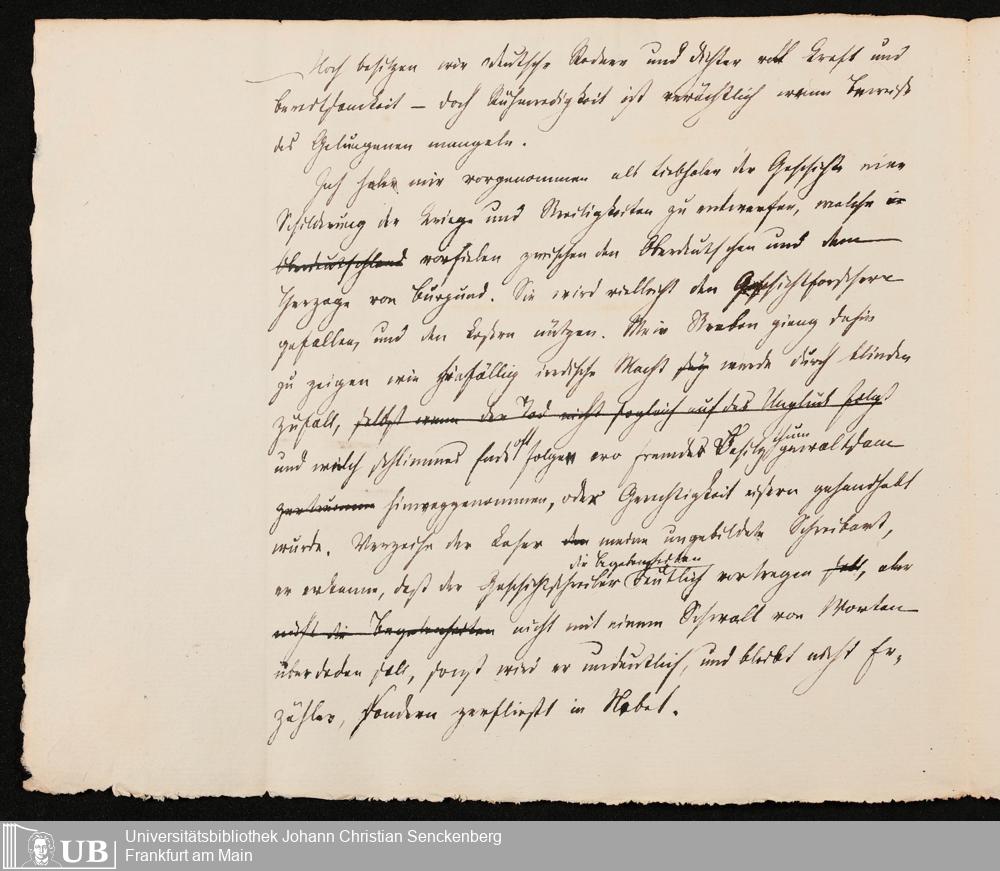 Noch besitzen wir deutsche Redner und Dichter voll Kraft und
beredtsamkeit – doch Ruhmredigkeit ist verächtlich wenn Beweise
des Gelungenen mangeln.
Ich habe mir vorgenommen als Liebhaber der Geschichte eine
Schilderung der Kriege und Streitigkeiten zu entwerfen, welche in
Oberdeutschland vorfielen zwischen den Oberdeutschen und dem
Herzoge von Burgund. Sie wird vielleicht den Geschichtforschern
gefallen, und den Lesern nützen. Mein Streben gieng dahin
zu zeigen wie hinfällig irdische Macht sey werde durch blinden
Zufall, selbst wenn der Tod nicht sogleich auf das Unglück folgt
und welch schlimmes Ende oft folge wo fremdes Besitzthum gewaltsam
hinweggenommen, oder Gerechtigkeit eisern gehandhabt
wurde. Verzeihe der Leser den meine ungebildete Schreibart,
die Begebenheiten
er erkenne, daß der Geschichtschreiber deutlich vortragen soll, aber
nicht die Begebenheiten nicht mit einem Schwall von Worten
überladen soll, sonst wird er undeutlich, und bleibt nicht Er-
zähler, sondern zerfließt in Nebel.
UB
Universitätsbibliothek Johann Christian Senckenberg
Frankfurt am Main